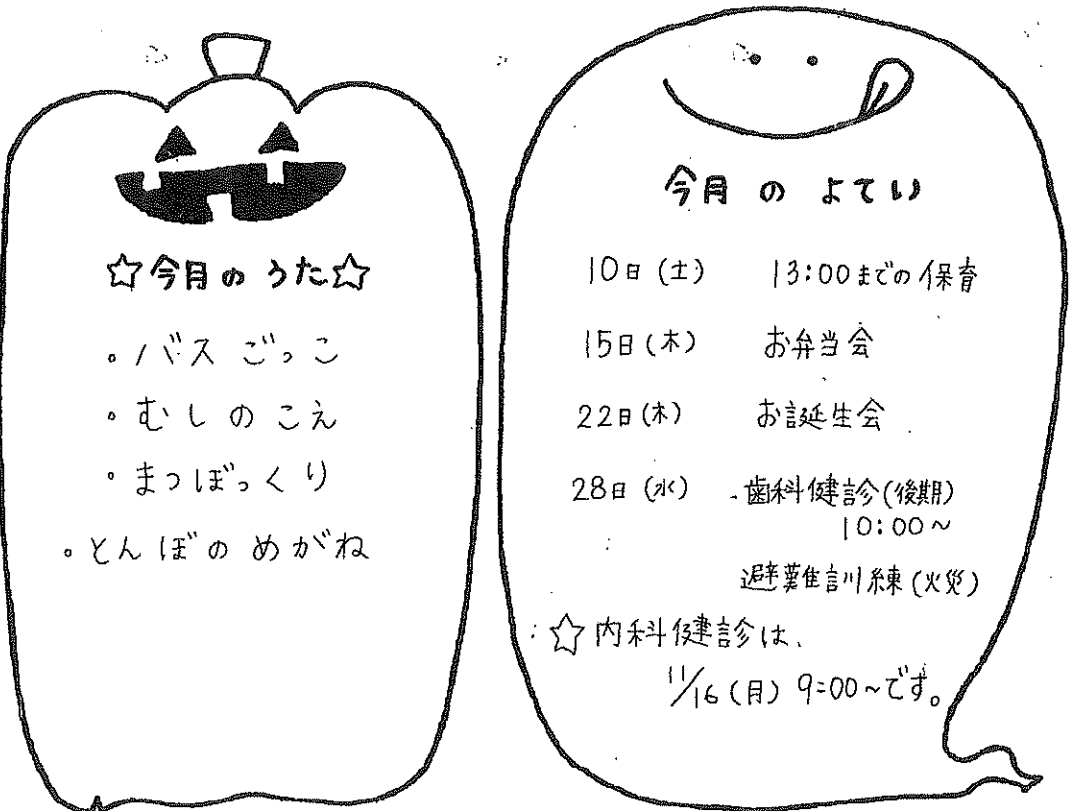 ☆今月の うた☆
。バス ごっこ
。むしのこえ
。まつぼっくり
。とんぼの めがね
今月 の よてい
10日(土) 13:00までの保育
15日(木) お弁当会
22日(木) お誕生会
28日(水) 歯科健診(後期)
10:00~
避難訓練(火災)
☆内科健診は、
11/16(月) 9:00~です。